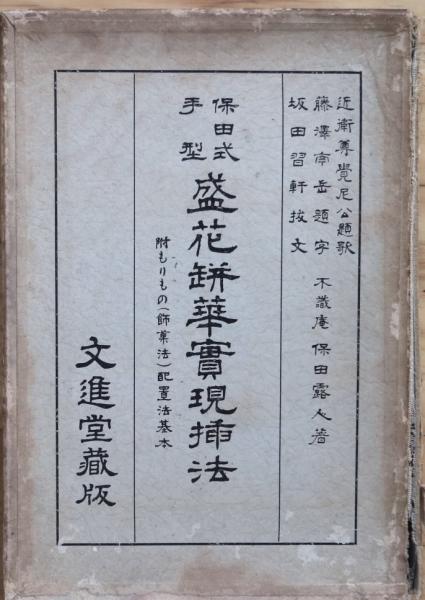 近衛尊覺尼公題歌
藤澤南岳題字
坂田習軒拔文
不識庵 保田露人著
保田式
手型
盛花缾華實現揷法
附もりもの(飾菓法)配置法基本
文進堂藏版